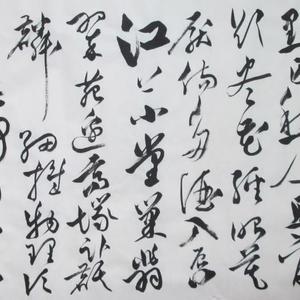 點正愁人且看
欲盡花經眼莫
厭傷多酒入唇
江上小堂巢翡
翠苑邊高塚臥麒
麟細推物理須